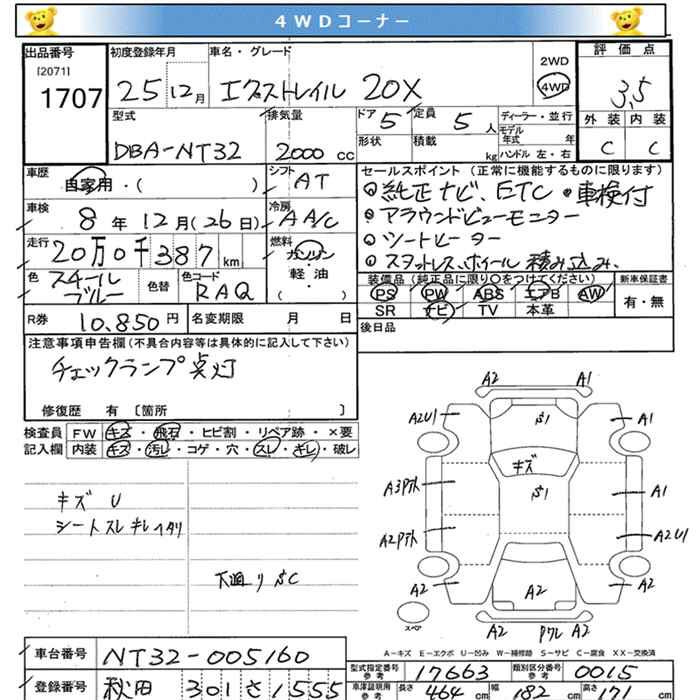 4WDコーナー
出品番号 初度登録年月 車名・グレード 評価点
[2071]
1707
25 12月 エクストレイル 20X 2WD 4WD 3.5
型式 排気量 ドア 5 定員 5人 ディーラー・並行 外装 内装
モデル年式 年
DBA-NT32 2000 cc 形状 積載 kg ハンドル 左・右 C C
車歴 自家用・( ) シフト AT
車検 8年12月(26日) 冷房 AA/C
走行 20万0千387 km 燃料 ガソリン・軽油・( )
色 スチールブルー 色替 色コード RAQ
セールスポイント(正常に機能するものに限ります)
純正ナビ、ETC 車検付
アラウンドビューモニター
シートヒーター
スタットレス、ホイール積み込み、
装備品(純正品に限り〇をつけてください) 新車保証書
PS PW ABS エアB AW 有・無
SR ナビ TV 本革
R券 10,850円 名変期限 月 日
後日品
注意事項申告欄(不具合内容等は具体的に記入して下さい)
チェックランプ点灯
修復歴 有 〔箇所 〕
検査員 FW キズ・飛石・ヒビ割・リペア跡・×要
記入欄 内装 キズ・汚レ・コゲ・穴・スレ・キレ・破レ
キズ U
シートスレキレヘタリ
下廻り SC
A2 A1
A2U1 S1 A1
キズ
A3Pアト S1 A1
A2Pアト A2U1
A2 A2 A2
スペア A2 PワレS A2
A-キズ E-エクボ U-凹み W-補修跡 S-サビ C-腐食 XX-交換済
車台番号 NT32-005160
型式指定番号 参考 17663 類別区分番号 参考 0015
登録番号 秋田 301 さ 1555
車体証明用 参考 長さ 464 cm 幅 182 cm 高さ 171 cm